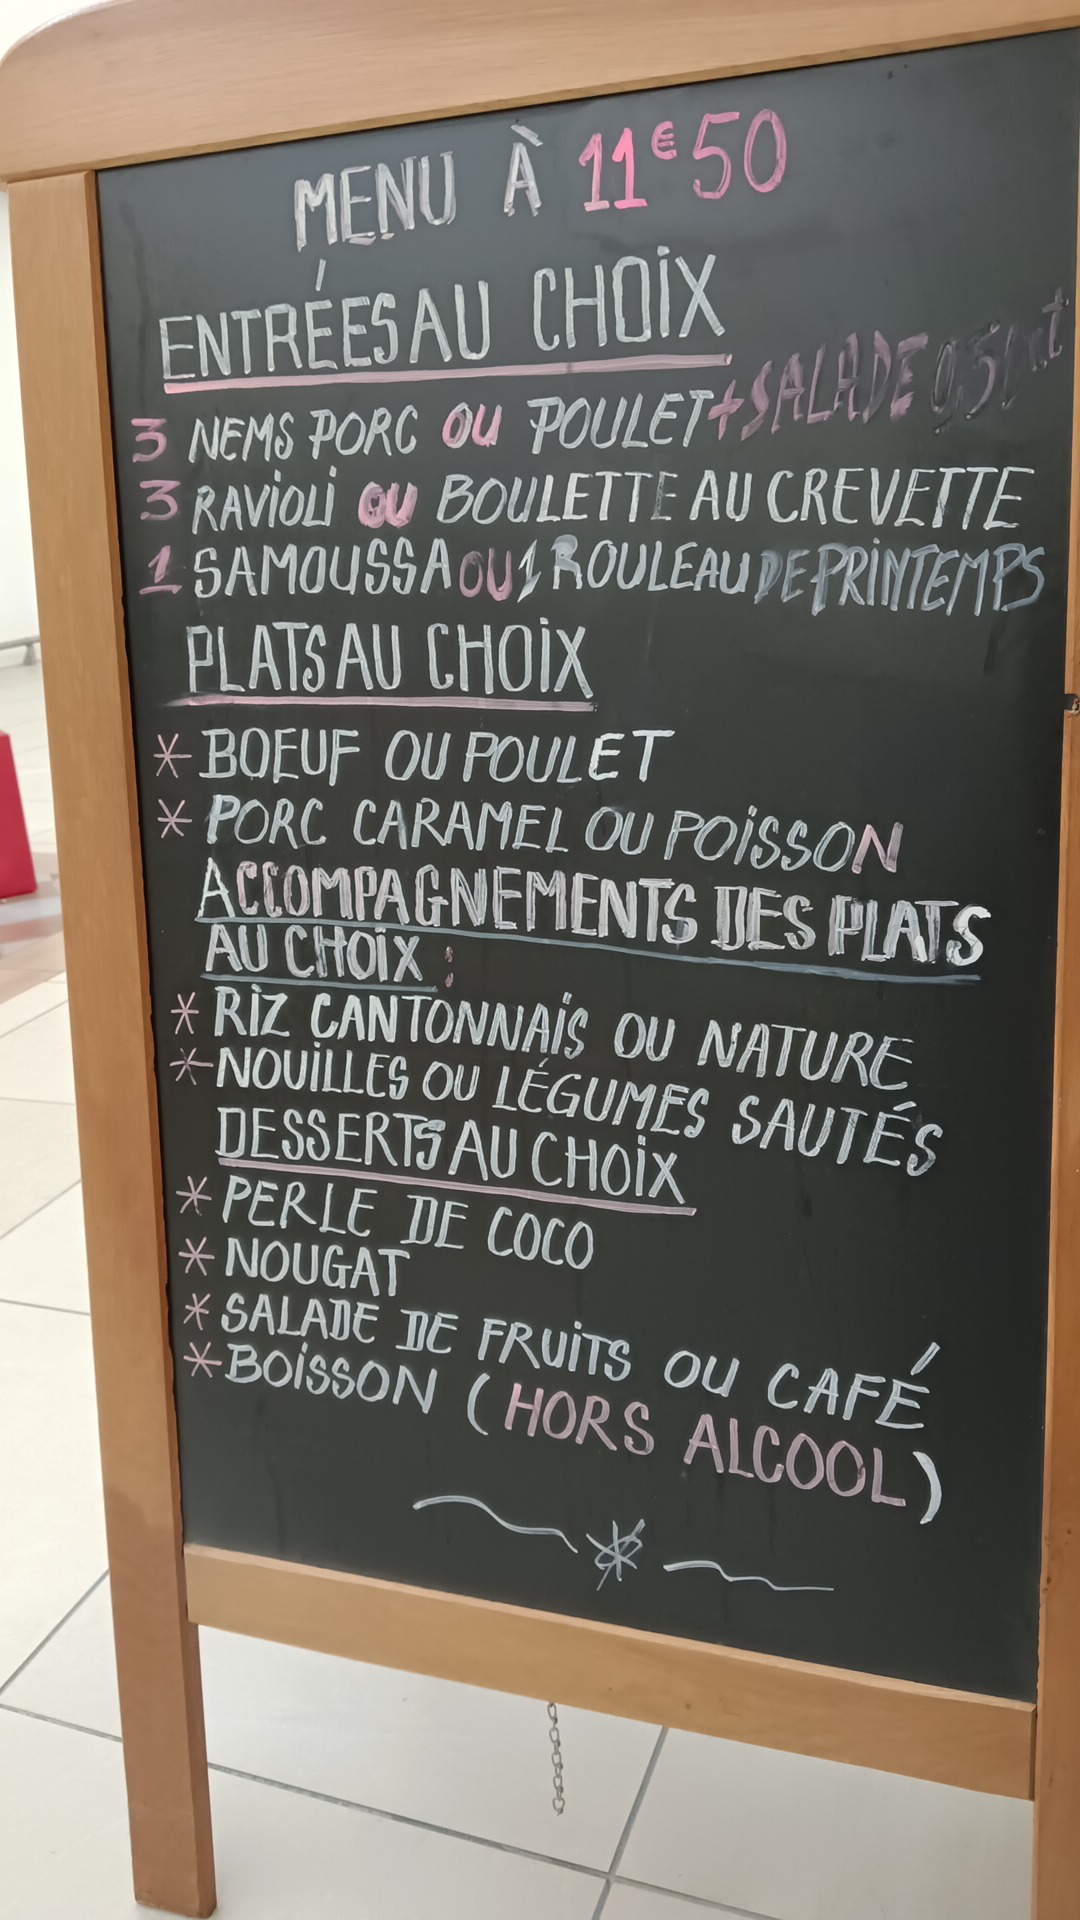 MENU À 11€50
ENTRÉES AU CHOIX
3 NEMS PORC OU POULET + SALADE 0,50
3 RAVIOLI OU BOULETTE AU CREVETTE
1 SAMOUSSA OU 1 ROULEAU DE PRINTEMPS
PLATS AU CHOIX
* BOEUF OU POULET
* PORC CARAMEL OU POISSON
ACCOMPAGNEMENTS DES PLATS
AU CHOIX :
* RIZ CANTONNAIS OU NATURE
* NOUILLES OU LÉGUMES SAUTÉS
DESSERTS AU CHOIX
* PERLE DE COCO
* NOUGAT
* SALADE DE FRUITS OU CAFÉ
* BOISSON (HORS ALCOOL)